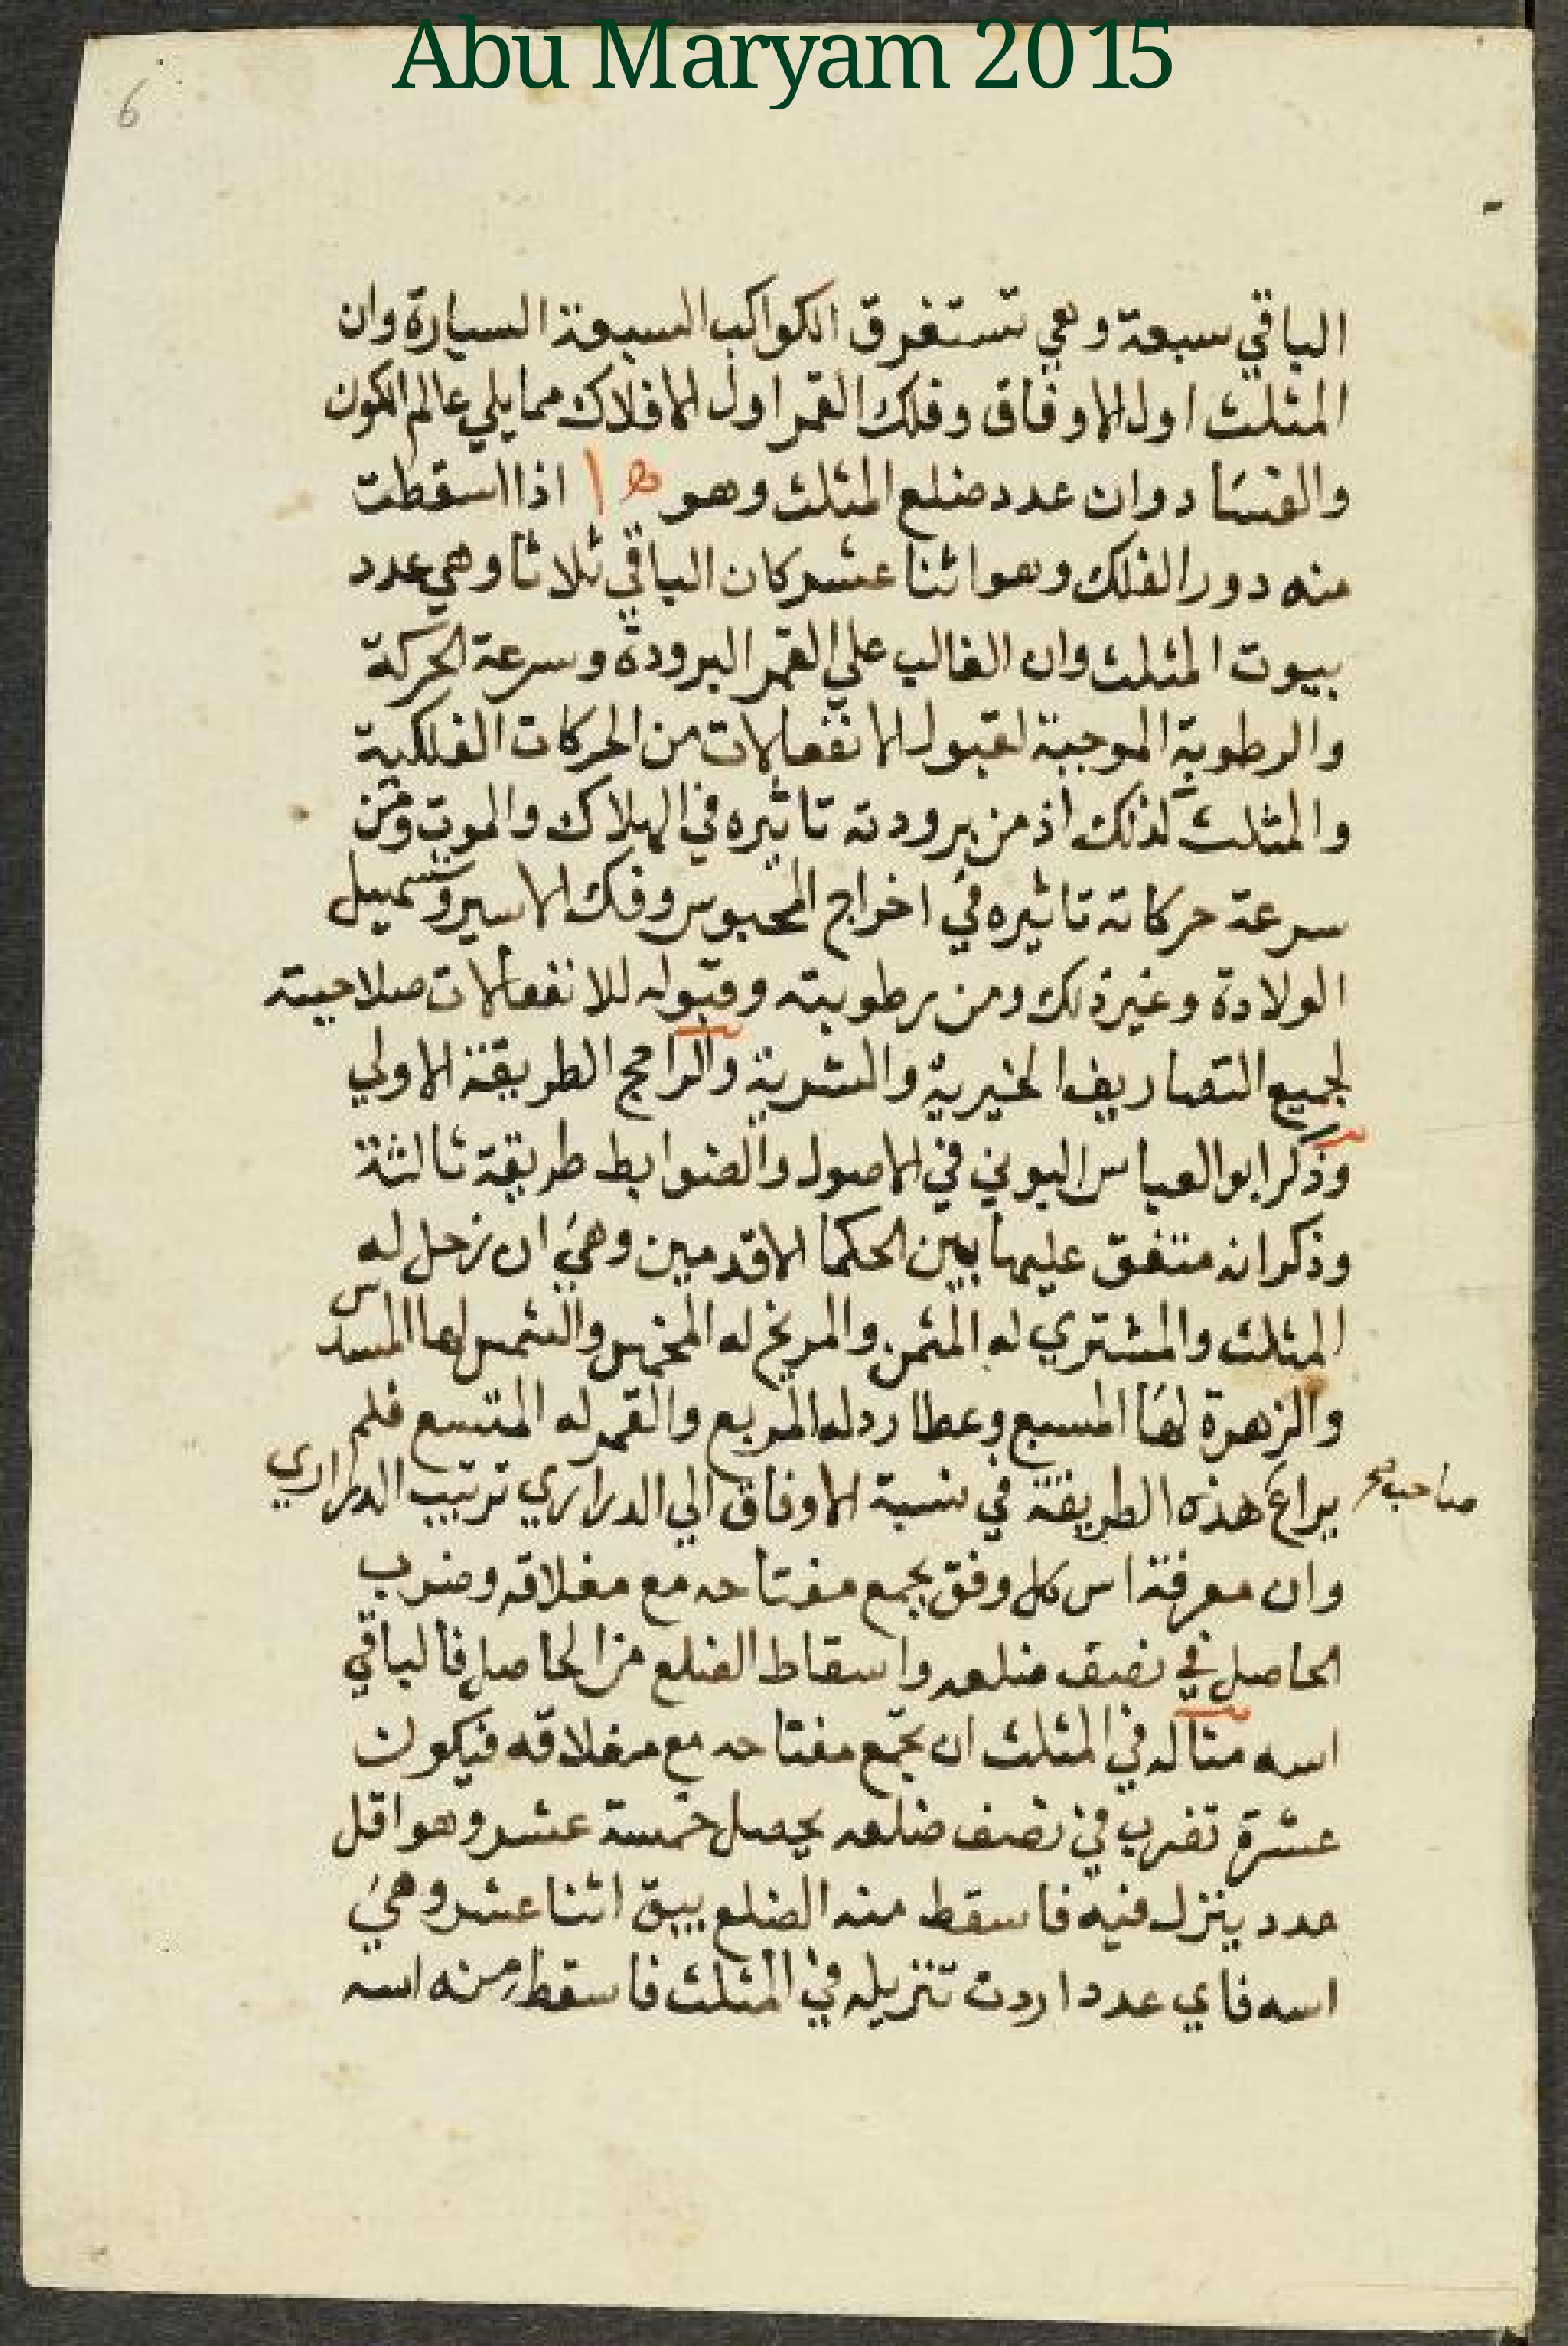 Abu Maryam 2015
6
الباقي سبعة وهي تستغرق الكواكب السبعة السيارة وان
المثلث اول الاوفاق وفلك القمر اول الافلاك مما يلي عالم الكون
والفساد وان عدد ضلع المثلث وهو ١٥ اذا اسقطت
منه دور الفلك وهو اثنا عشر كان الباقي ثلاثا وهي عدد
بيوت المثلث وان الغالب علي القمر البرودة وسرعة الحركة
والرطوبة الموجبة لقبول الانفعالات من الحركات الفلكية
والمثلث كذلك اذ من برودته تاثيره في الهلاك والموت ومن
سرعة حركاته تاثيره في اخراج المحبوس وفك الاسير وتسهيل
الولادة وغير ذلك ومن رطوبته وقبوله للانفعالات صلاحيته
لجميع التصاريف الخيرية والشرية والراجح الطريقة الاولي
وذكر ابو العباس البوني في الاصول والضوابط طريقة ثالثة
وذكر انه متفق عليها بين الحكما الاقدمين وهي ان زحل له
المثلث والمشتري له المثمن والمريخ له المخمس والشمس لها المسدس
والزهرة لها المسبع وعطارد له المربع والقمر له المتسع فلم
يراع هذه الطريقة في نسبة الاوفاق الي الدراري ترتيب الدراري
صاحب صح
وان معرفة اس كل وفق بجمع مفتاحه مع مغلاقه وضرب
الحاصل في نصف ضلعه واسقاط الضلع من الحاصل فالباقي
اسه مثاله في المثلث ان تجمع مفتاحه مع مغلاقه فيكون
عشرة تضرب في نصف ضلعه يحصل خمسة عشر وهو اقل
عدد ينزل فيه فاسقط منه الضلع يبق اثنا عشر وهي
اسه فاي عدد اردت تنزيله في المثلث فاسقط منه اسه